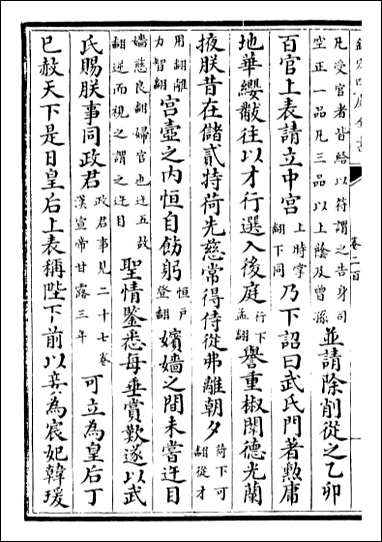 卷二百
凡受官者皆給以符謂之告身司空正一品凡三品以上蔭及曾孫並請除削從之乙卯
百官上表請立中宮上時掌翻下同乃下詔曰武氏門著勲庸
地華纓黻往以才行選入後庭行下孟翻譽重椒闈德光蘭
掖朕昔在儲貳特荷先慈常得侍從弗離朝夕荷下可翻從才
用翻離力智翻宮壼之内恒自飭躬恒戶登翻嬪嬙之間未嘗迕目
嬙慈良翻婦官也迕五故翻逆而視之謂之迕目聖情鑒悉每垂賞歎遂以武
氏賜朕事同政君政君事見二十七卷漢宣帝甘露三年可立為皇后丁
巳赦天下是日皇后上表稱陛下前以妾為宸妃韓瑗